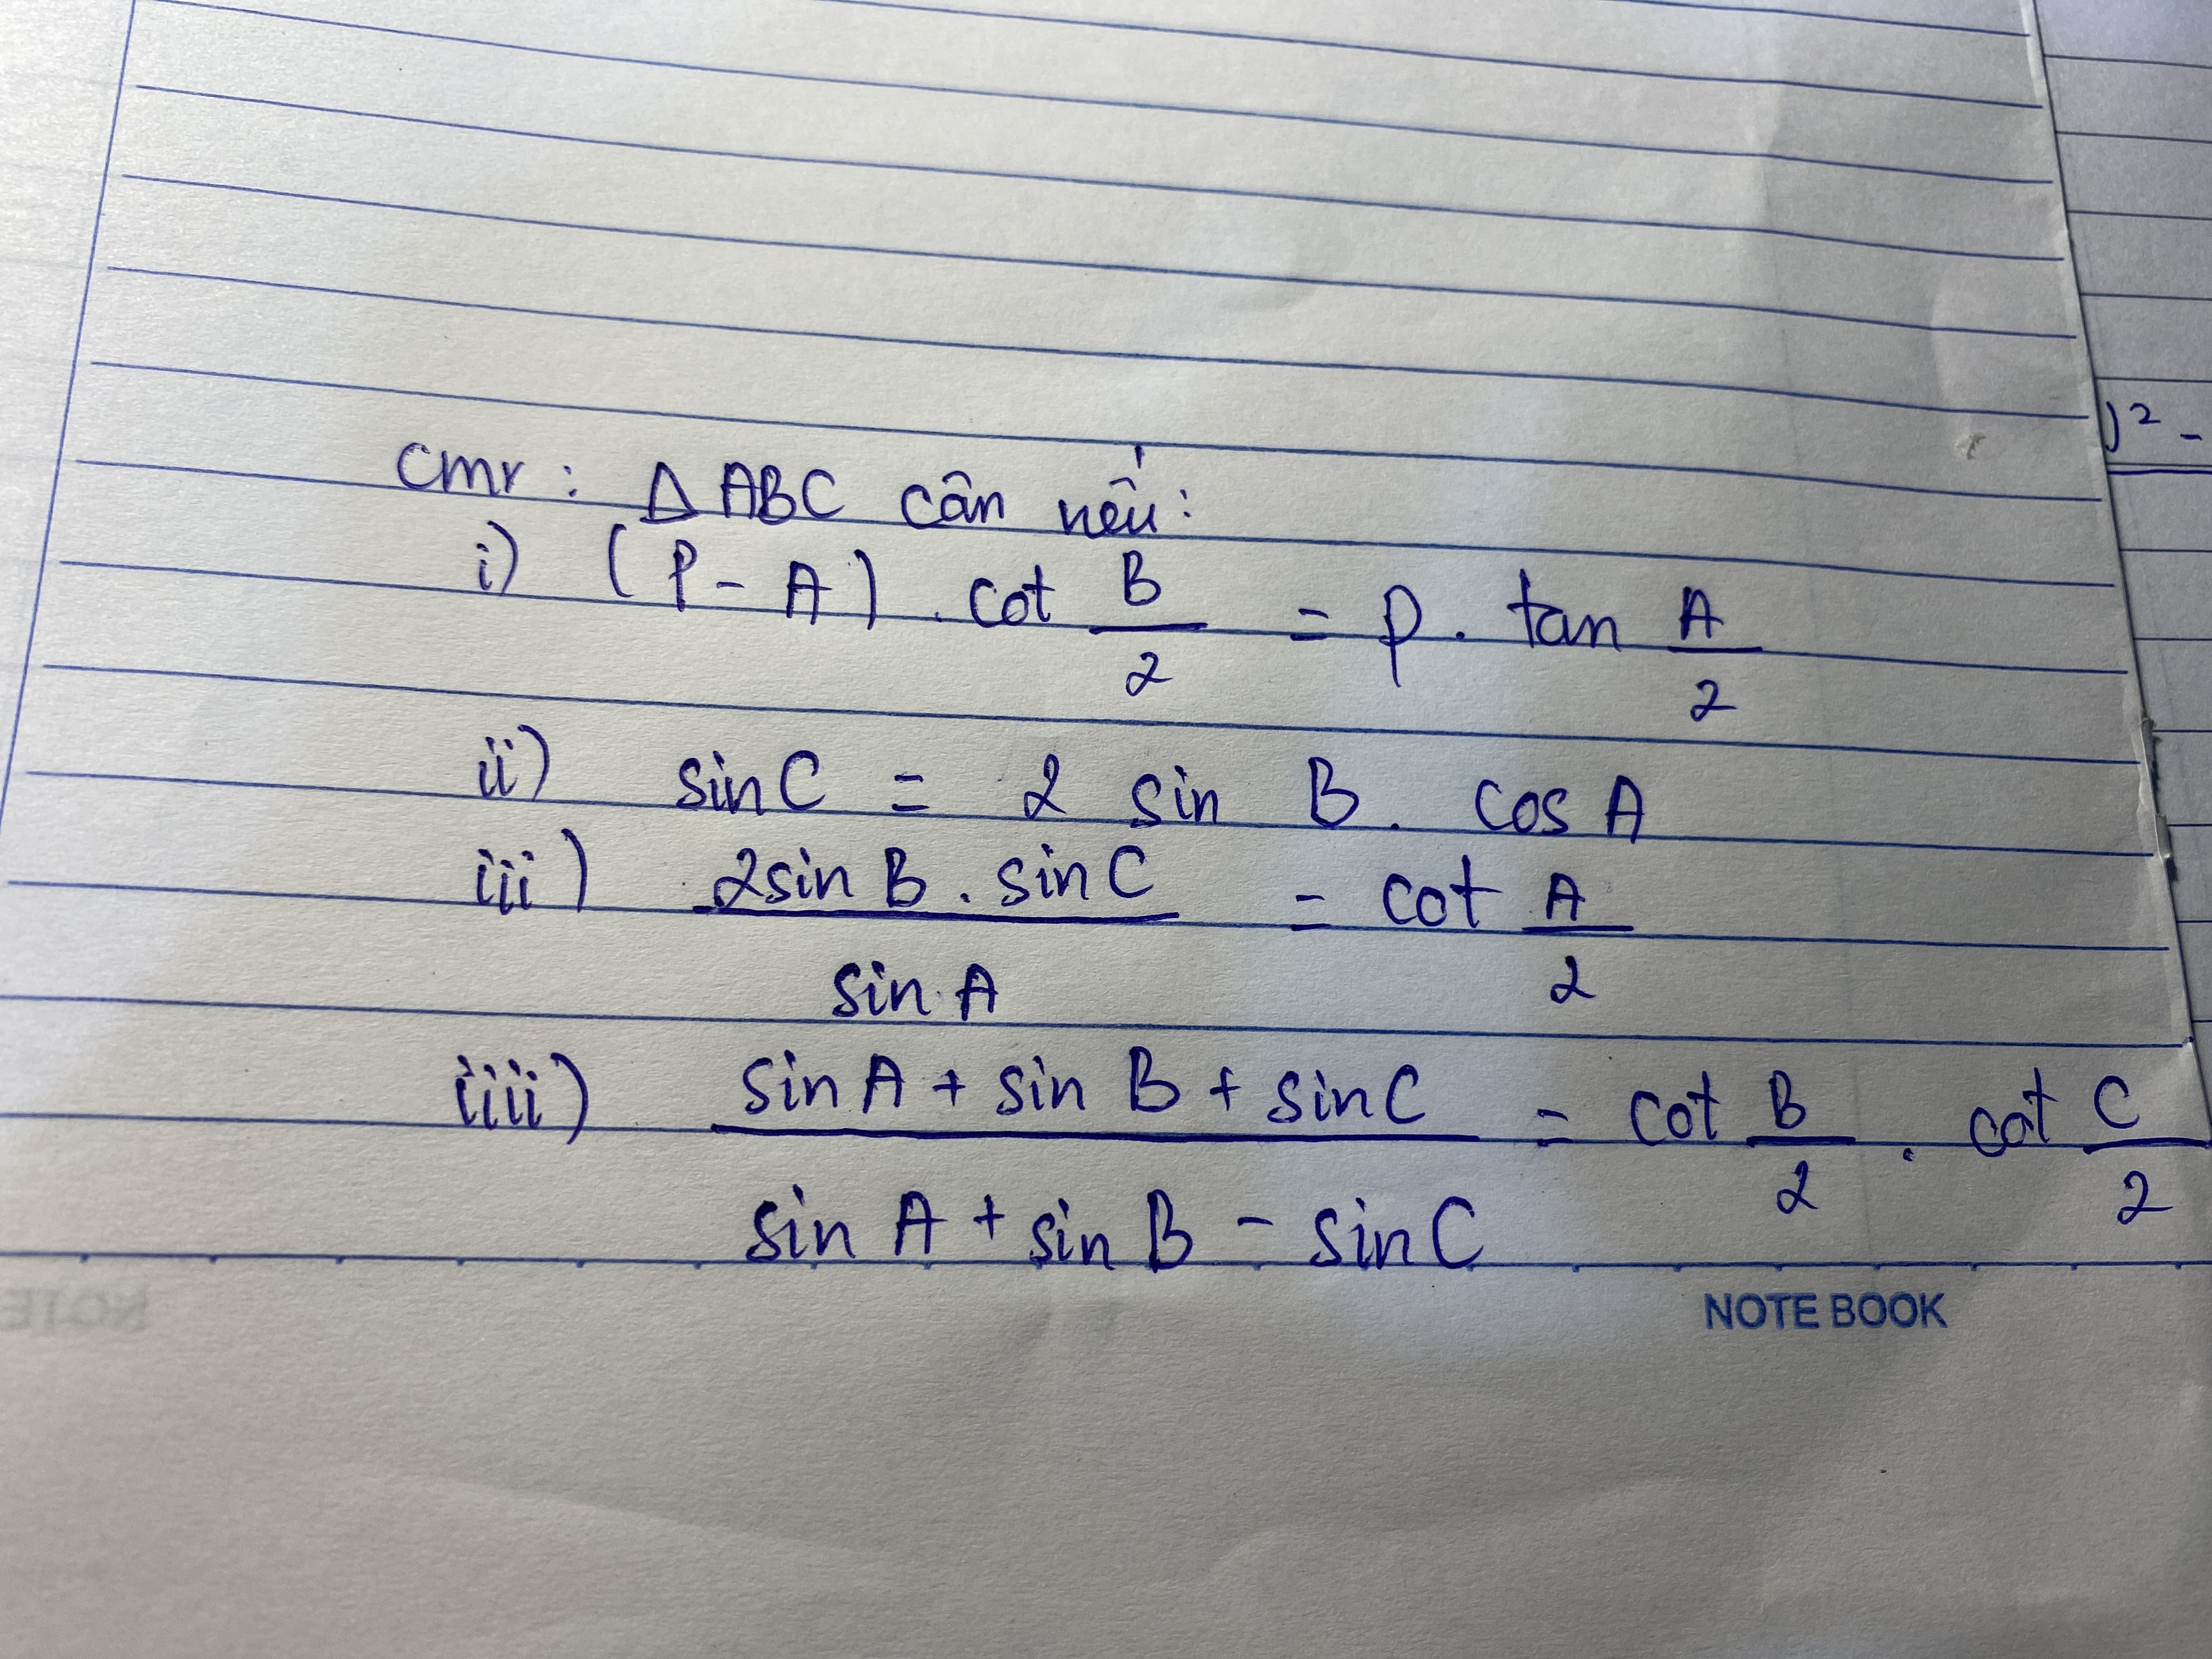 )² -
cmr : Δ ABC cân nếu :
i) (P - A) . cot B/2 = p . tan A/2
ii) sin C = 2 sin B . cos A
iii) 2sin B . sin C / sin A = cot A/2
iiii) sin A + sin B + sin C / sin A + sin B - sin C = cot B/2 . cot C/2
NOTE BOOK
NOTE